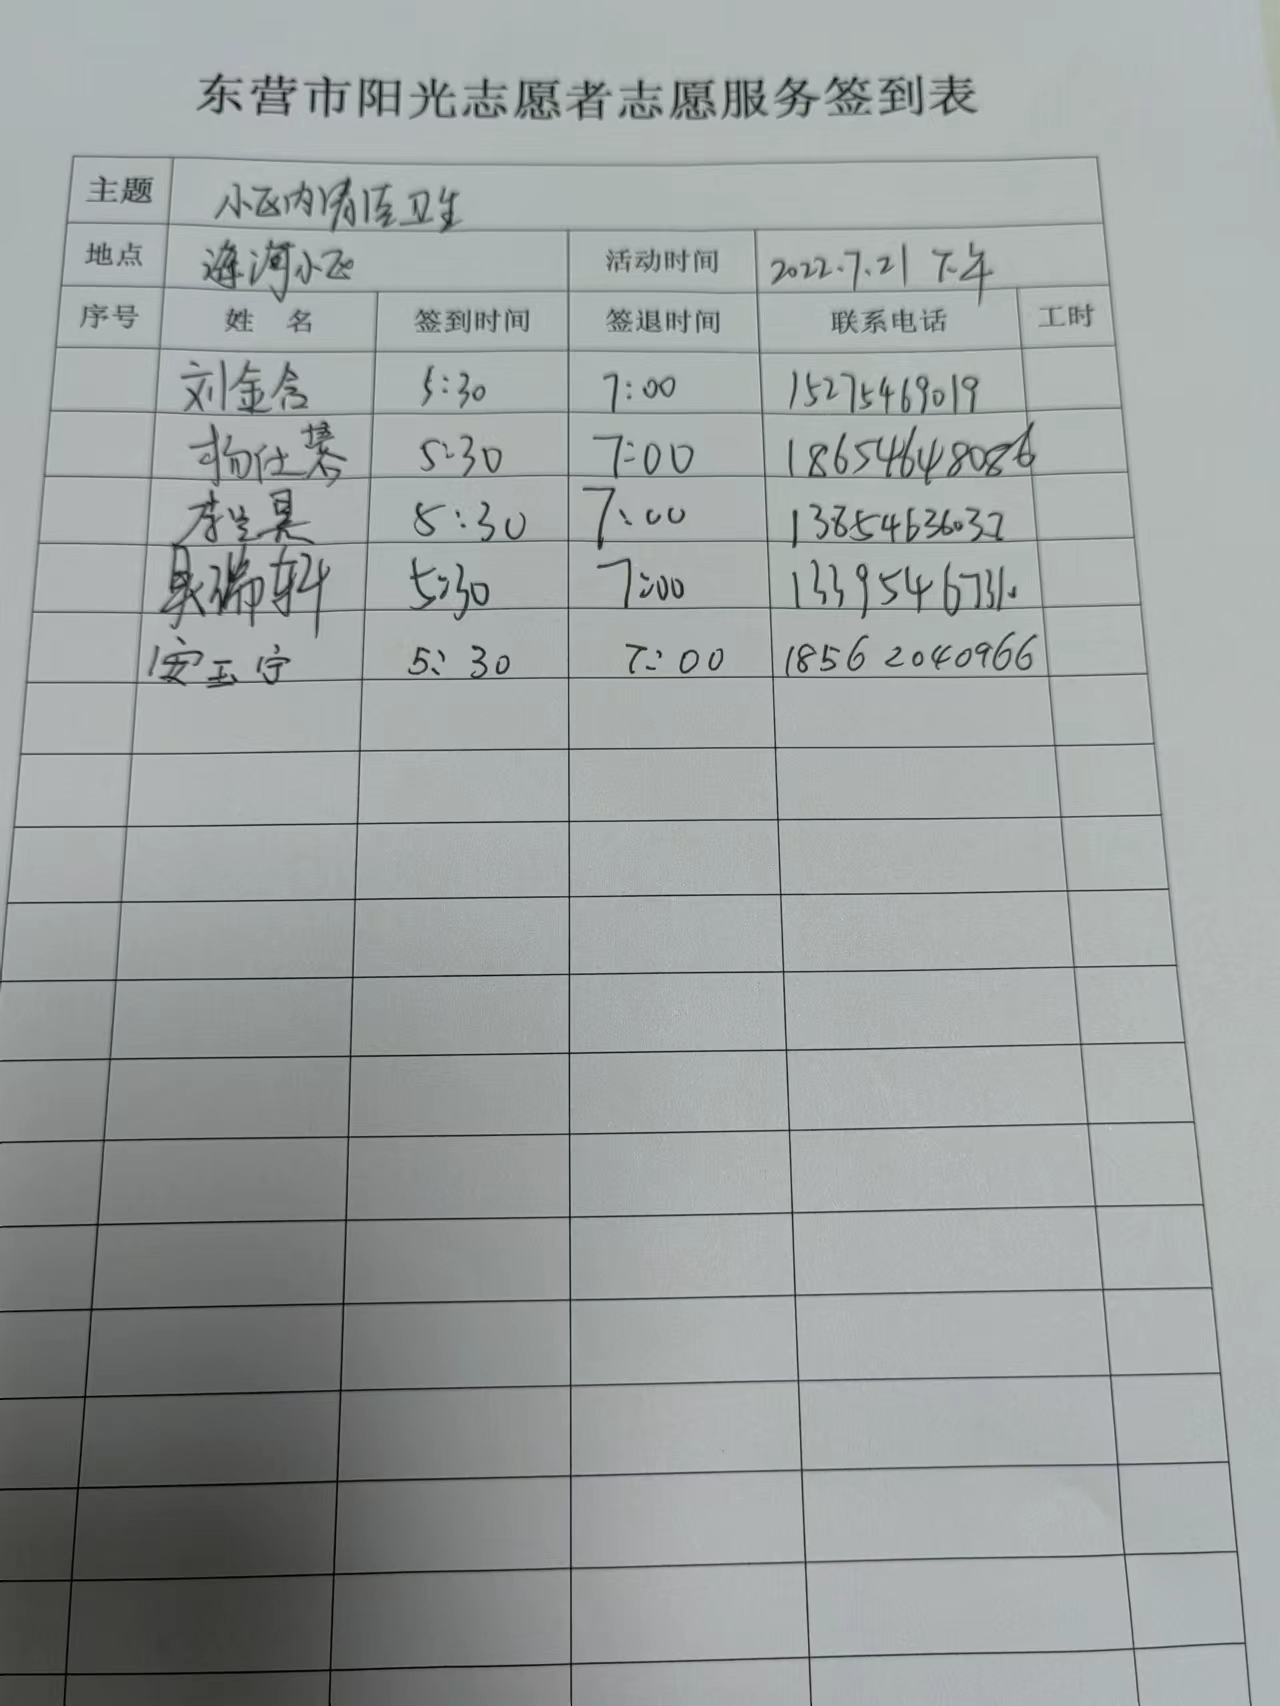 东营市阳光志愿者志愿服务签到表
主题 小区内清洁卫生
地点 海河小区 活动时间 2022.7.21 下午
序号 姓 名 签到时间 签退时间 联系电话 工时
刘金含 5:30 7:00 15275469019
杨仕 5:30 7:00 18654648086
李 昊 5:30 7:00 13854636032
吴瑞轩 5:30 7:00 1339546731
安玉宁 5:30 7:00 18562040966